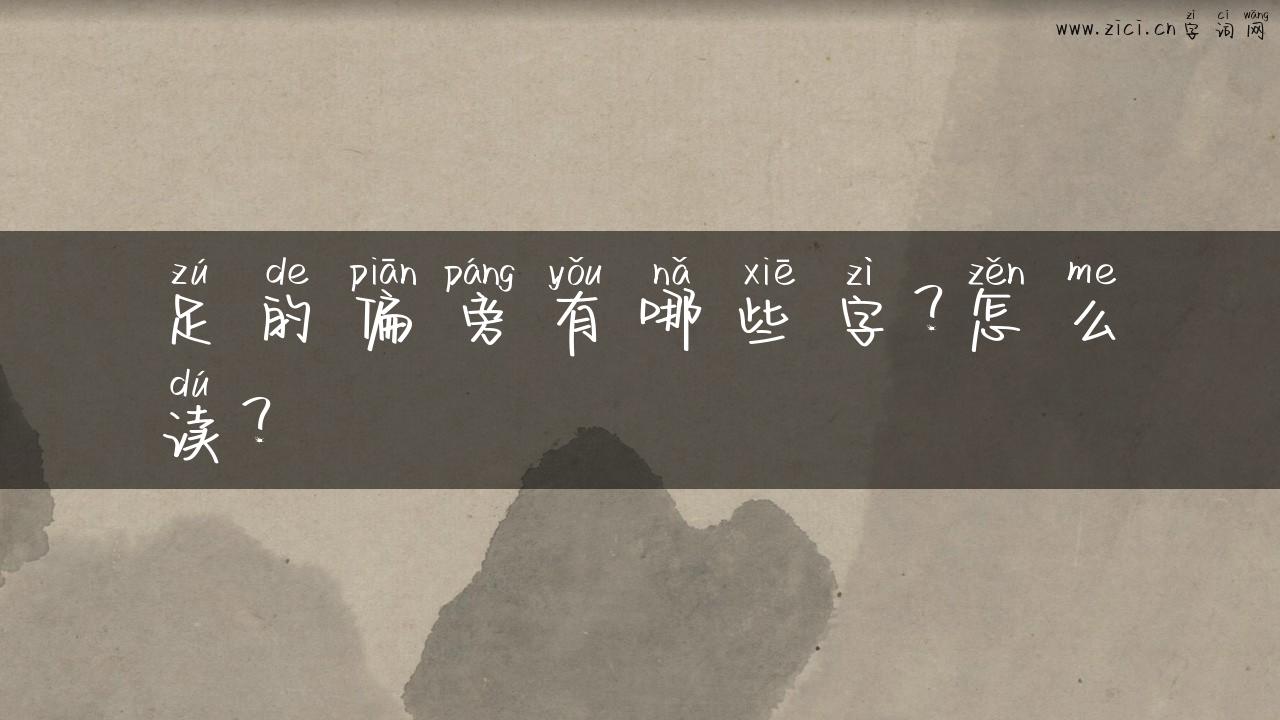 zì cí wǎng
www.zici.cn字词网
zú de piān páng yǒu nǎ xiē zì zěn me
足的偏旁有哪些字？怎么
dú
读？